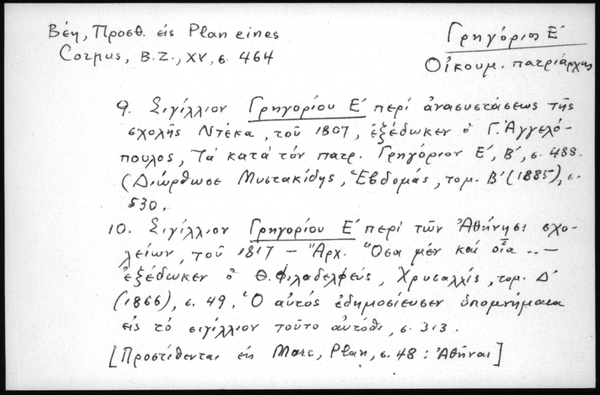 Βέη, Προσθ. εἰς Plan eines
Corpus, B.Z., XV, σ. 464
Γρηγόριος Ε΄
Οἰκουμ. πατριάρχης
9. Σιγίλλιον Γρηγορίου Ε΄ περί ἀνασυστάσεως τῆς
σχολῆς Ντέκα, τοῦ 1807, ἐξέδωκεν ὁ Γ. Ἀγγελό-
πουλος, Τά κατά τόν πατρ. Γρηγόριον Ε΄, Β΄, σ. 488.
(Διώρθωσε Μυστακίδης, Ἑβδομάς, τομ. Β΄ (1885), σ.
530.
10. Σιγίλλιον Γρηγορίου Ε΄ περί τῶν Ἀθήνησι σχο-
λείων, τοῦ 1817 – Ἀρχ. Ὅσα μέν καί οἷα ..–
ἐξέδωκεν ὁ Θ. Φιλαδελφεύς, Χρυσαλλίς, τομ. Δ΄
(1866), σ. 49. Ὁ αὐτός ἐδημοσίευσεν ὑπομνήματα
εἰς τό σιγίλλιον τοῦτο αὐτόθι, σ. 313.
[Προστίθενται εἰς Marc, Plan, σ. 48 : Ἀθῆναι]